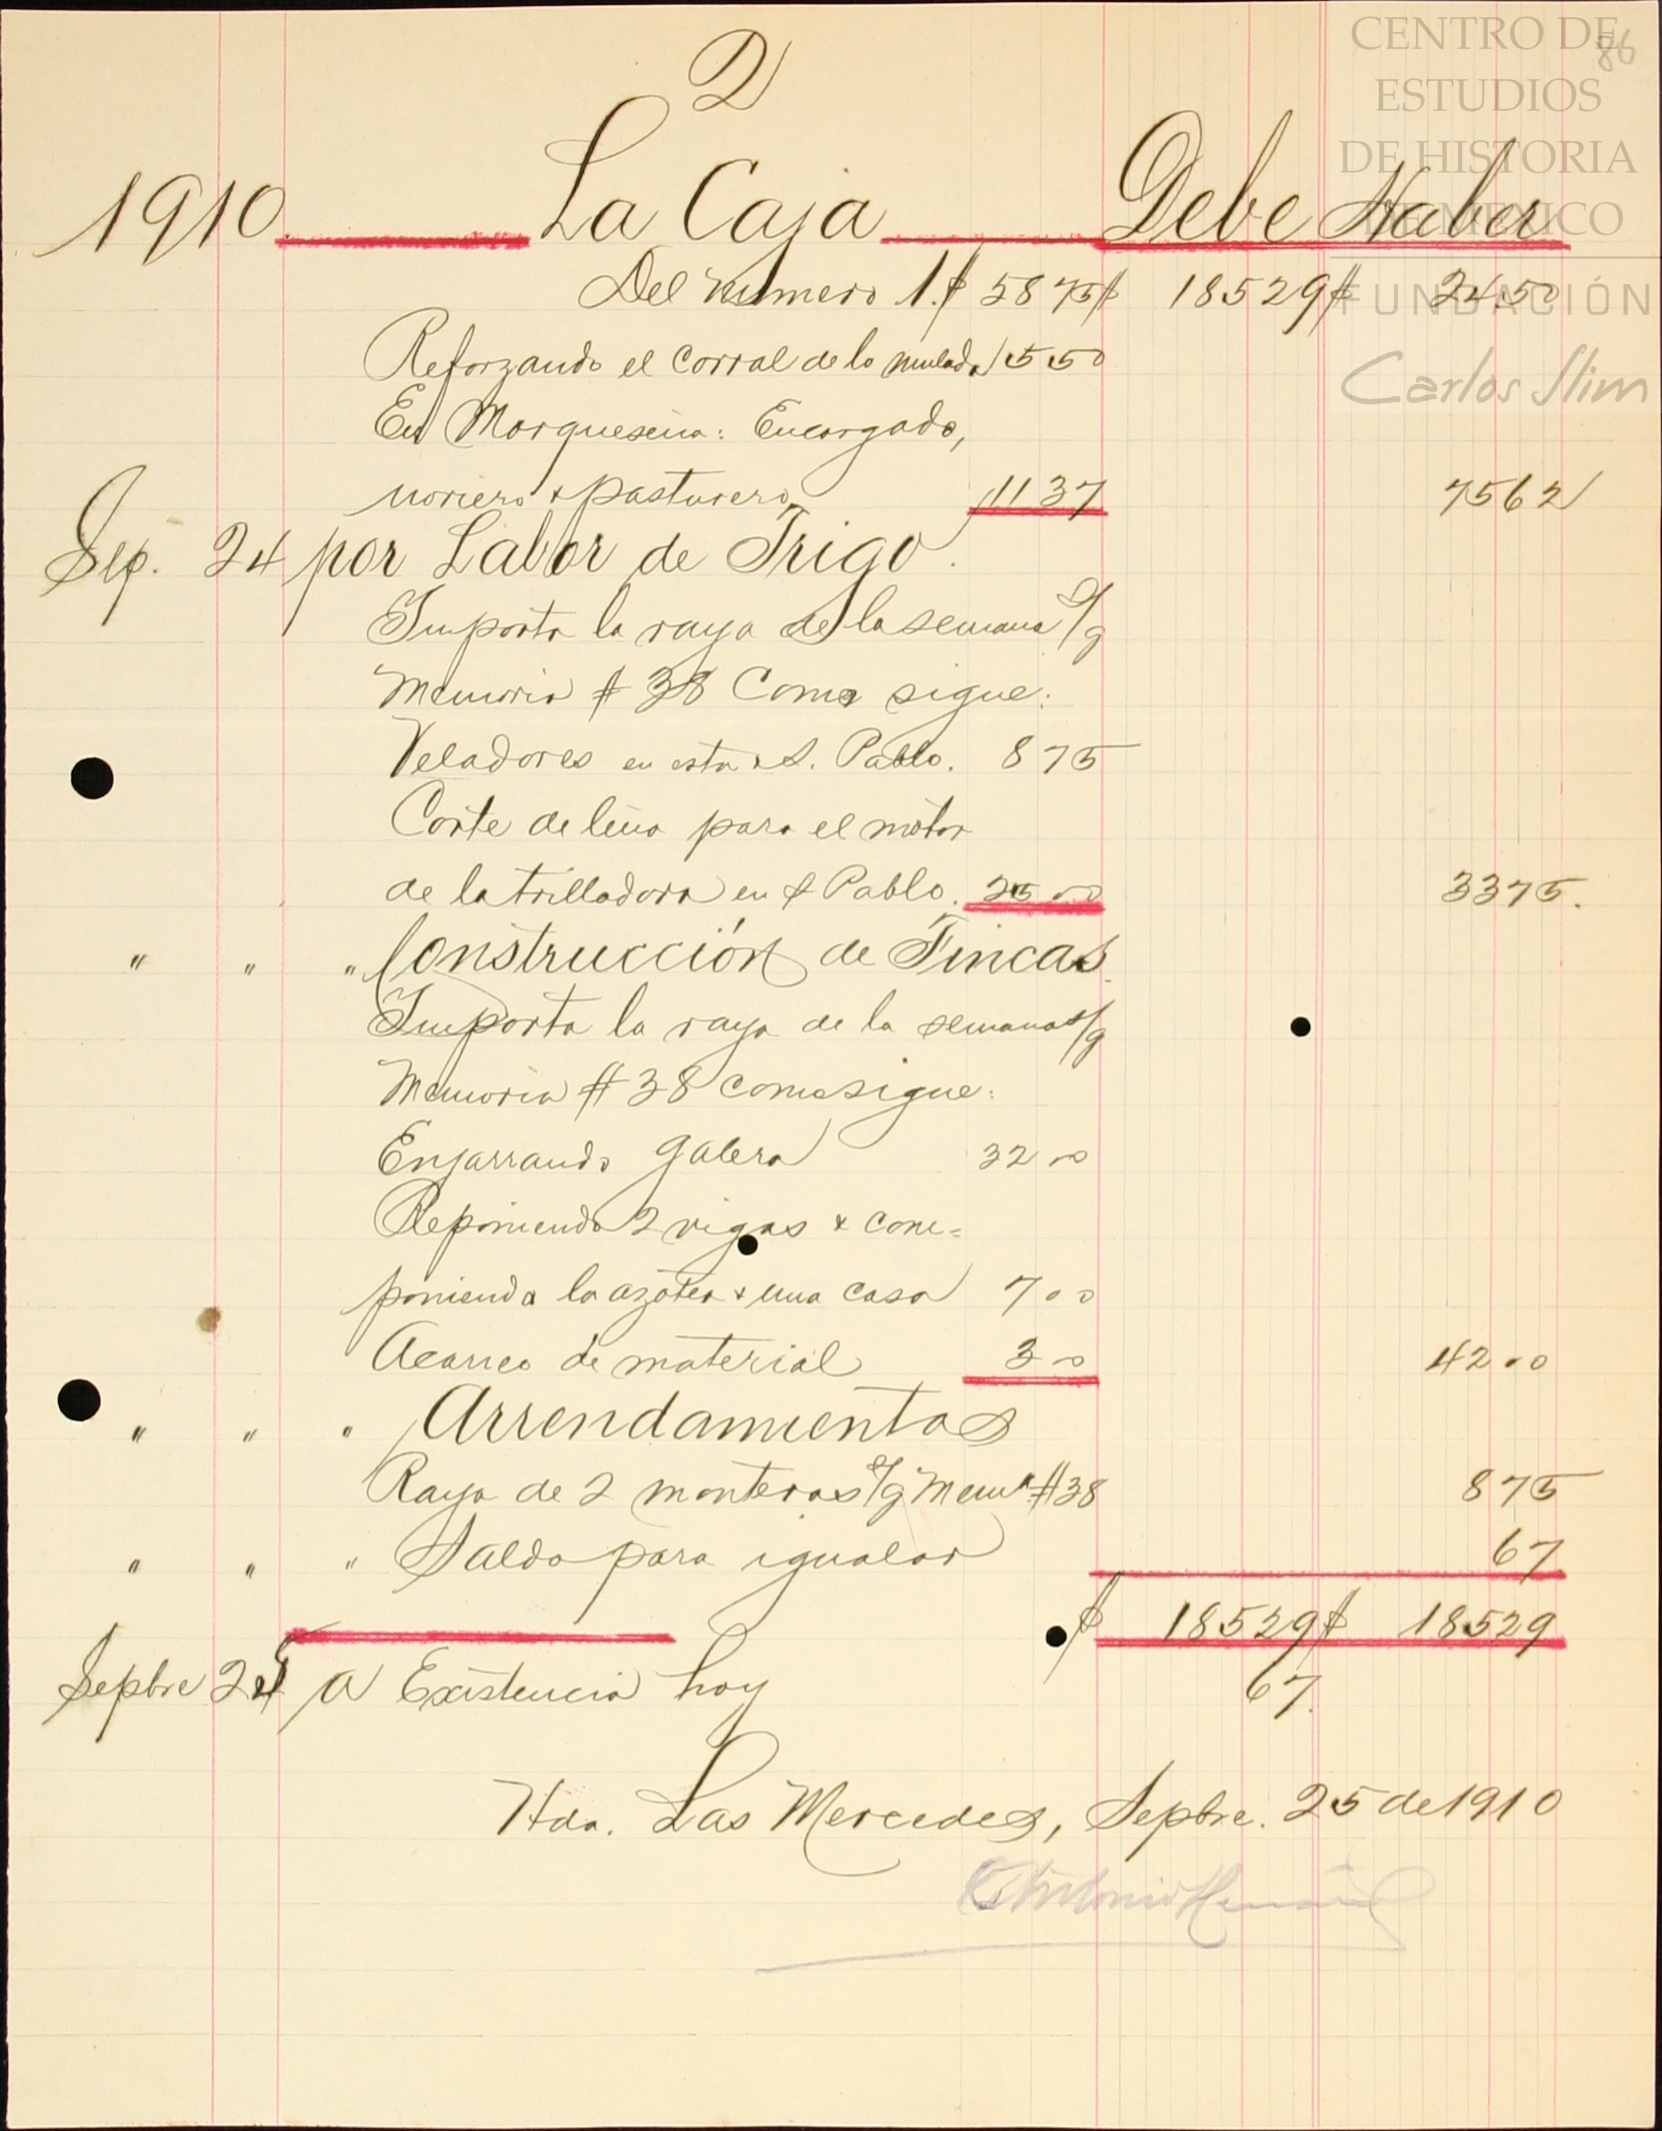 CENTRO DE
ESTUDIOS
DE HISTORIA
DE MEXICO
FUNDACIÓN
Carlos Slim
86
2
1910. La Caja Debe Haber
Del número 1. $ 5875 $ 18529 $ 2450
Reforzando el corral de la mulada 550
En Marqueseña: Encargado,
noriero & pasturero 1137 7562
Sep. 24 por Labor de Trigo.
Importa la raya de la semana s/g
Memoria # 38 Como sigue:
Veladores en esta & S. Pablo. 875
Corte de leña para el motor
de la trilladora en S Pablo. 2500 3375.
" " " Construcción de Fincas.
Importa la raya de la semana s/g
Memoria # 38 como sigue:
Enjarrando galera 3200
Reponiendo 2 vigas & com=
poniendo la azotea & una casa 700
Acarreo de material 300 4200
" " " Arrendamientos
Raya de 2 monteros s/g Memª #38 875
" " " Saldo para igualar 67
$ 18529 $ 18529
Septbre 24 a Existencia hoy 67.
Hda. Las Mercedes, Septbre. 25 de 1910
Antonio